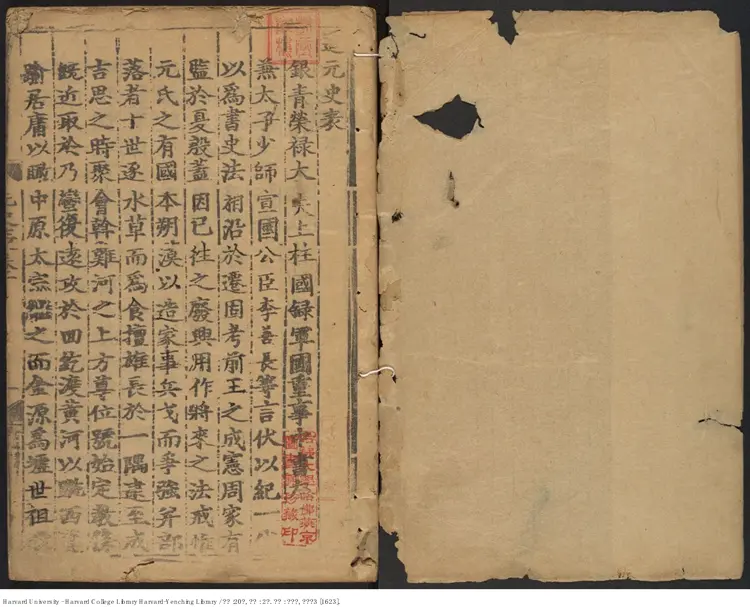 元史表
銀青榮禄大夫上柱國録軍國重事中書
兼太子少師宣國公臣李善長等言伏以紀一
以爲書史法相沿於遷固考前王之成憲周家有
監於夏殷蓋因已徃之廢興用作將來之法戒惟
元氏之有國本朔漠以造家事兵戈而爭強并部
落者十世逐水草而爲食擅雄長於一隅逮至成
吉思之時聚會斡難河之上方尊位號始定敎條
旣近取於乃蠻復遠攻於回紇渡黄河以蹴西
踰居庸以瞰中原太宗繼之而金源爲墟世祖
哈佛大學哈佛燕京
圖書館珍藏印
Harvard University - Harvard College Library Harvard-Yenching Library / ?? :20?, ?? : 2?. ?? : ???, ???3 [1623].